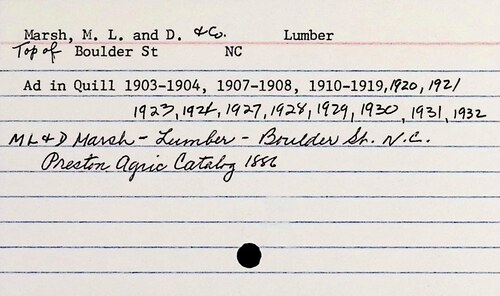 Marsh, M. L. and D. & Co. Lumber
Top of Boulder St NC
Ad in Quill 1903-1904, 1907-1908, 1910-1919, 1920, 1921
1923, 1924, 1927, 1928, 1929, 1930, 1931, 1932
ML & D Marsh - Lumber - Boulder St. N.C.
Preston Agric Catalog 1886